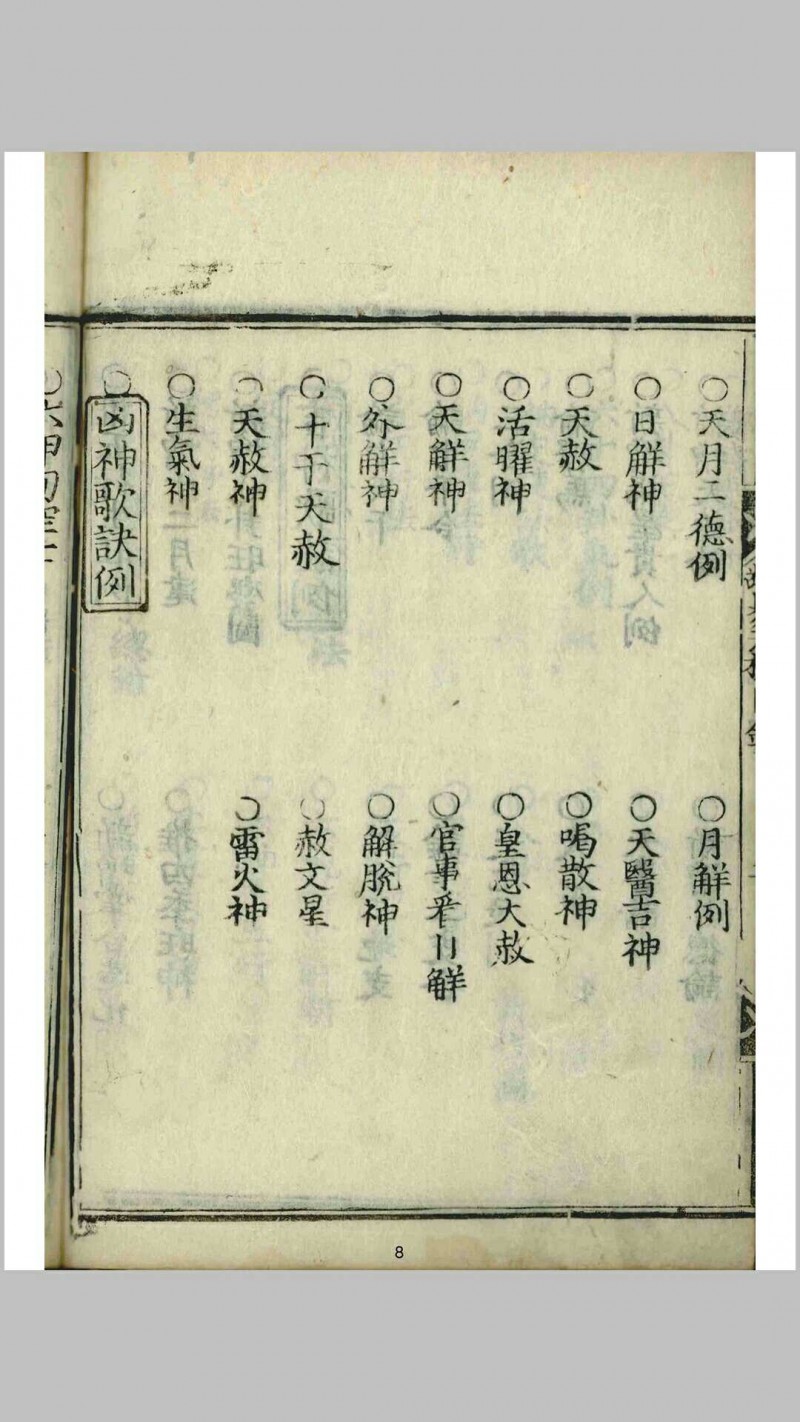 ○天月二德例　○月觧例
○日觧神　○天醫吉神
○天赦　○喝散神
○活曜神　○皇恩大赦
○天觧神　○官事看日觧
○外觧神　○解脫神
○十干天赦　○赦文星
○天赦神　○雷火神
○生氣神
○凶神歌訣例
8